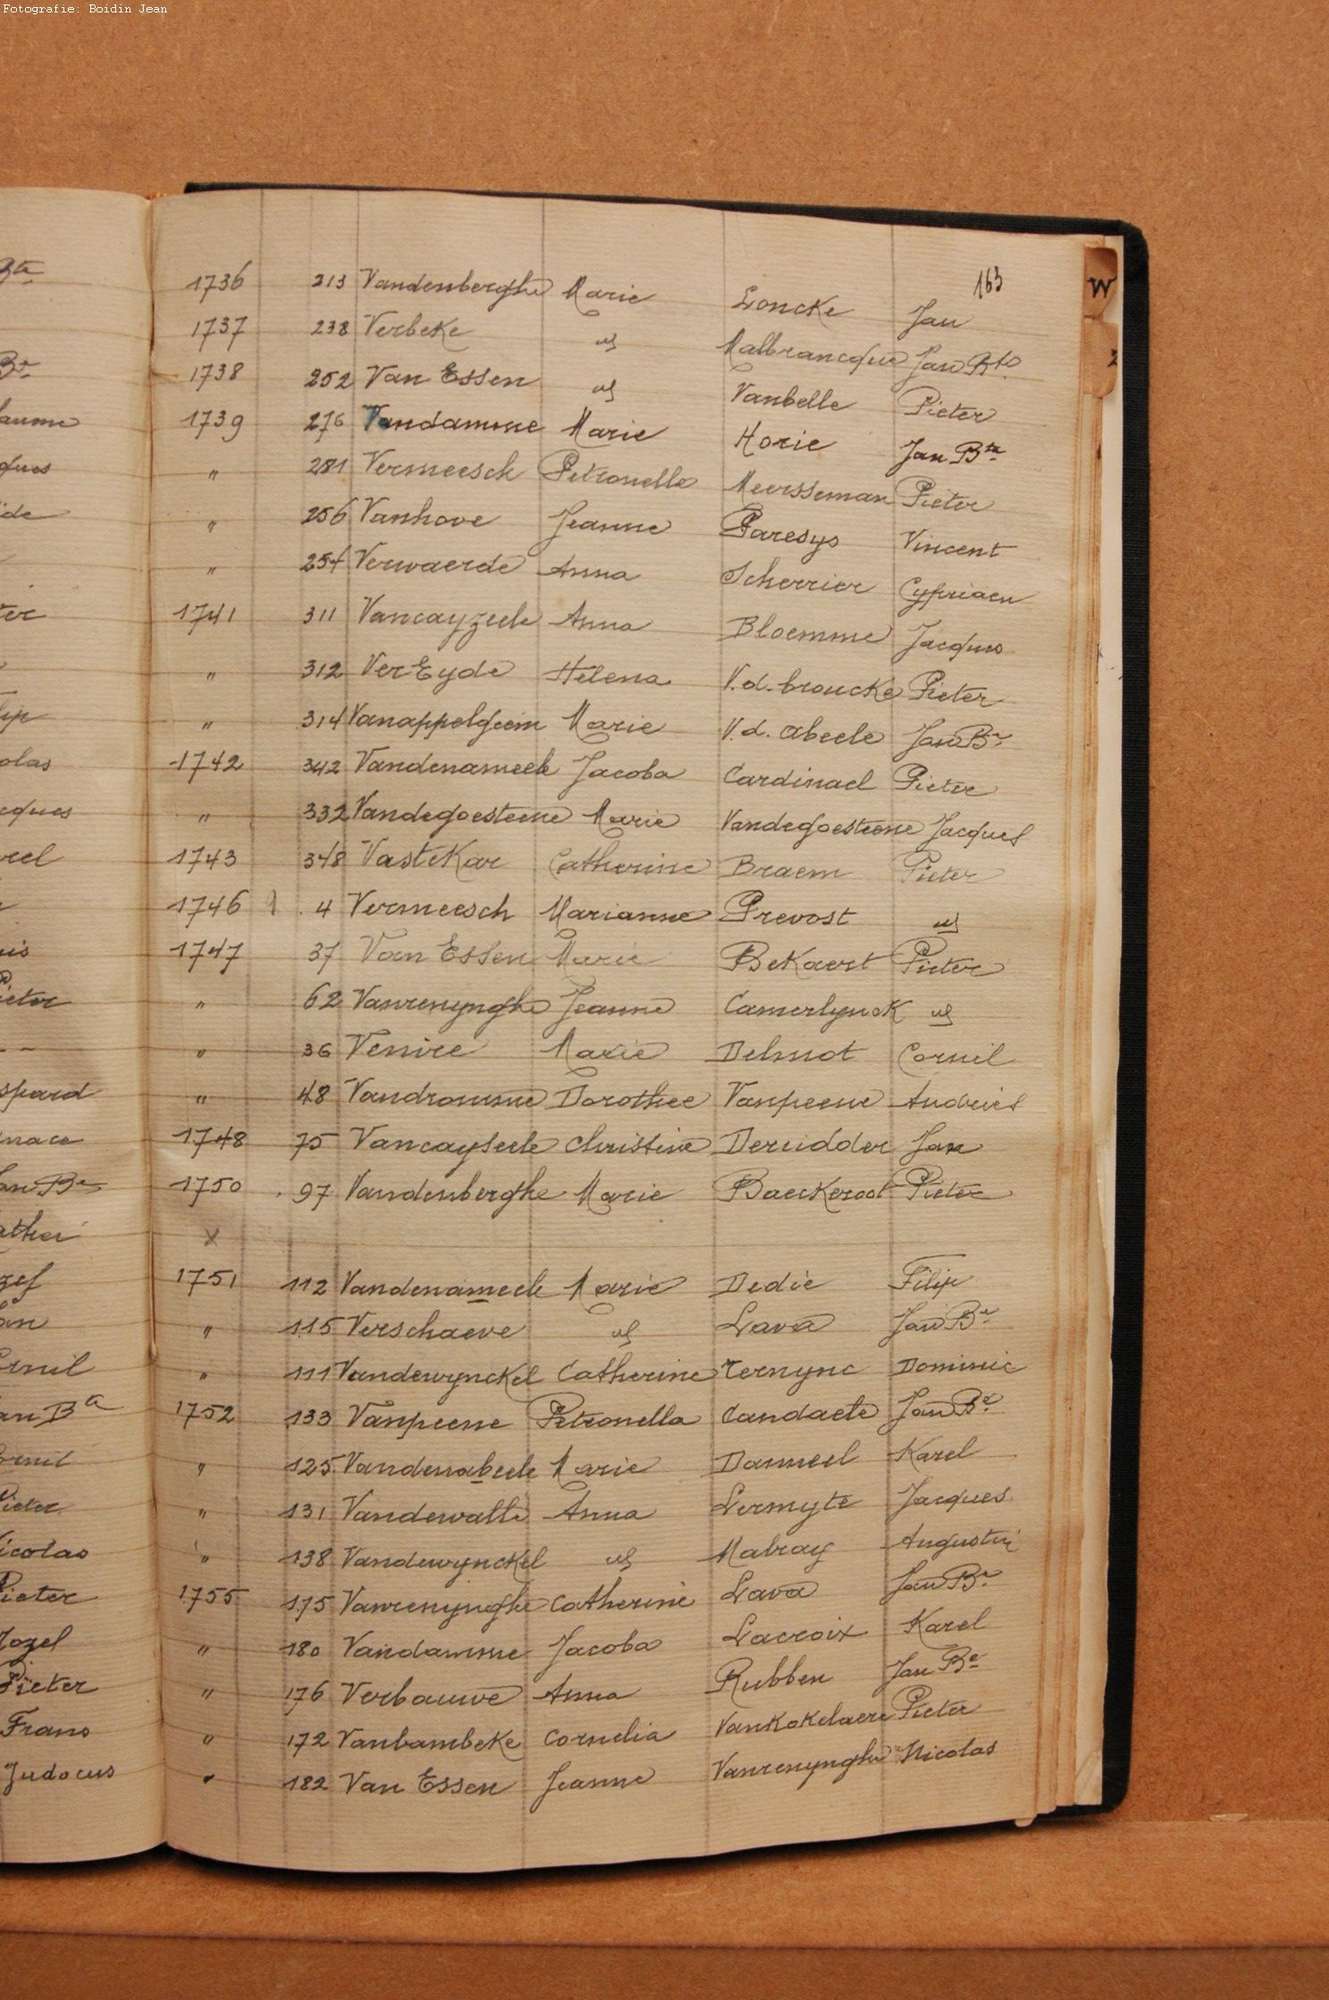 Fotografie: Boidin Jean
163
W
1736 213 Vandenberghe Marie Loncke Jan
1737 238 Verbeke id Malbrancque Jan Bte
1738 252 Van Essen id Vanbelle Pieter
1739 276 Vandamme Marie Horie Jan Bte
" 281 Vermeesch Petronelle Meersseman Pieter
" 256 Vanhove Jeanne Paresys Vincent
" 254 Verwaerde Anna Scherrier Cypriaen
1741 311 Vancayzeele Anna Bloemme Jacques
" 312 VerEyde Helena V.d. broucke Pieter
" 314 Vanappelgeem Marie V.d. abeele Jan Bte
1742 342 Vandenameele Jacoba Cardinael Pieter
" 332 Vandegoesteene Marie Vandegoesteene Jacques
1743 348 Vastekar Catherine Braem Pieter
1746 4 Vermeesch Marianne Prevost id
1747 37 Van Essen Marie Bekaert Pieter
" 62 Vanrenynghe Jeanne Camerlynck id
" 36 Venire Marie Delmot Cornil
" 48 Vandromme Dorothee Vanpeene Andries
1748 75 Vancayseele Christine Deruidder Jan
1750 97 Vandenberghe Marie Baeckeroot Pieter
x
1751 112 Vandenameele Marie Dedie Filip
" 115 Verschaeve id Lava Jan Bte
" 111 Vandewynckel Catherine Ternync Dominic
1752 133 Vanpeene Petronella Candaele Jan Bte
" 125 Vandenabeele Marie Danneel Karel
" 131 Vandewalle Anna Lermyte Jacques
" 138 Vandewynckel id Malray Augustin
1755 175 Vanrenynghe Catherine Lava Jan Bte
" 180 Vandamme Jacoba Lacroix Karel
" 176 Verbauwe Anna Rubben Jan Bte
" 172 Vanbambeke Cornelia Vankokelaere Pieter
" 182 Van Essen Jeanne Vanrenynghe Nicolas